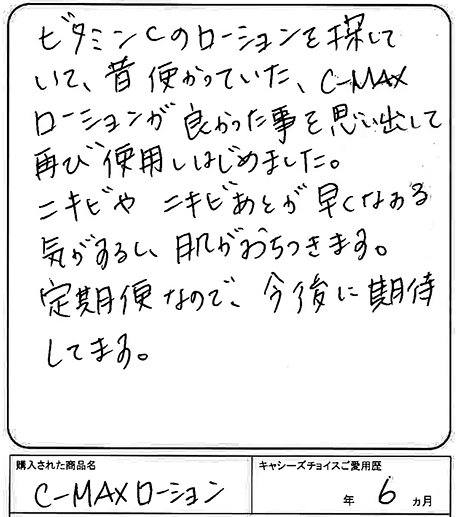 ビタミンCのローションを探して
いて、昔使かっていた、C-MAX
ローションが良かった事を思い出して
再び使用しはじめました。
ニキビや ニキビあとが早くなおる
気がするし、肌がおちつきます。
定期便なので、今後に期待
してます。
購入された商品名
キャシーズチョイスご愛用歴
C-MAXローション
年 6 ヵ月